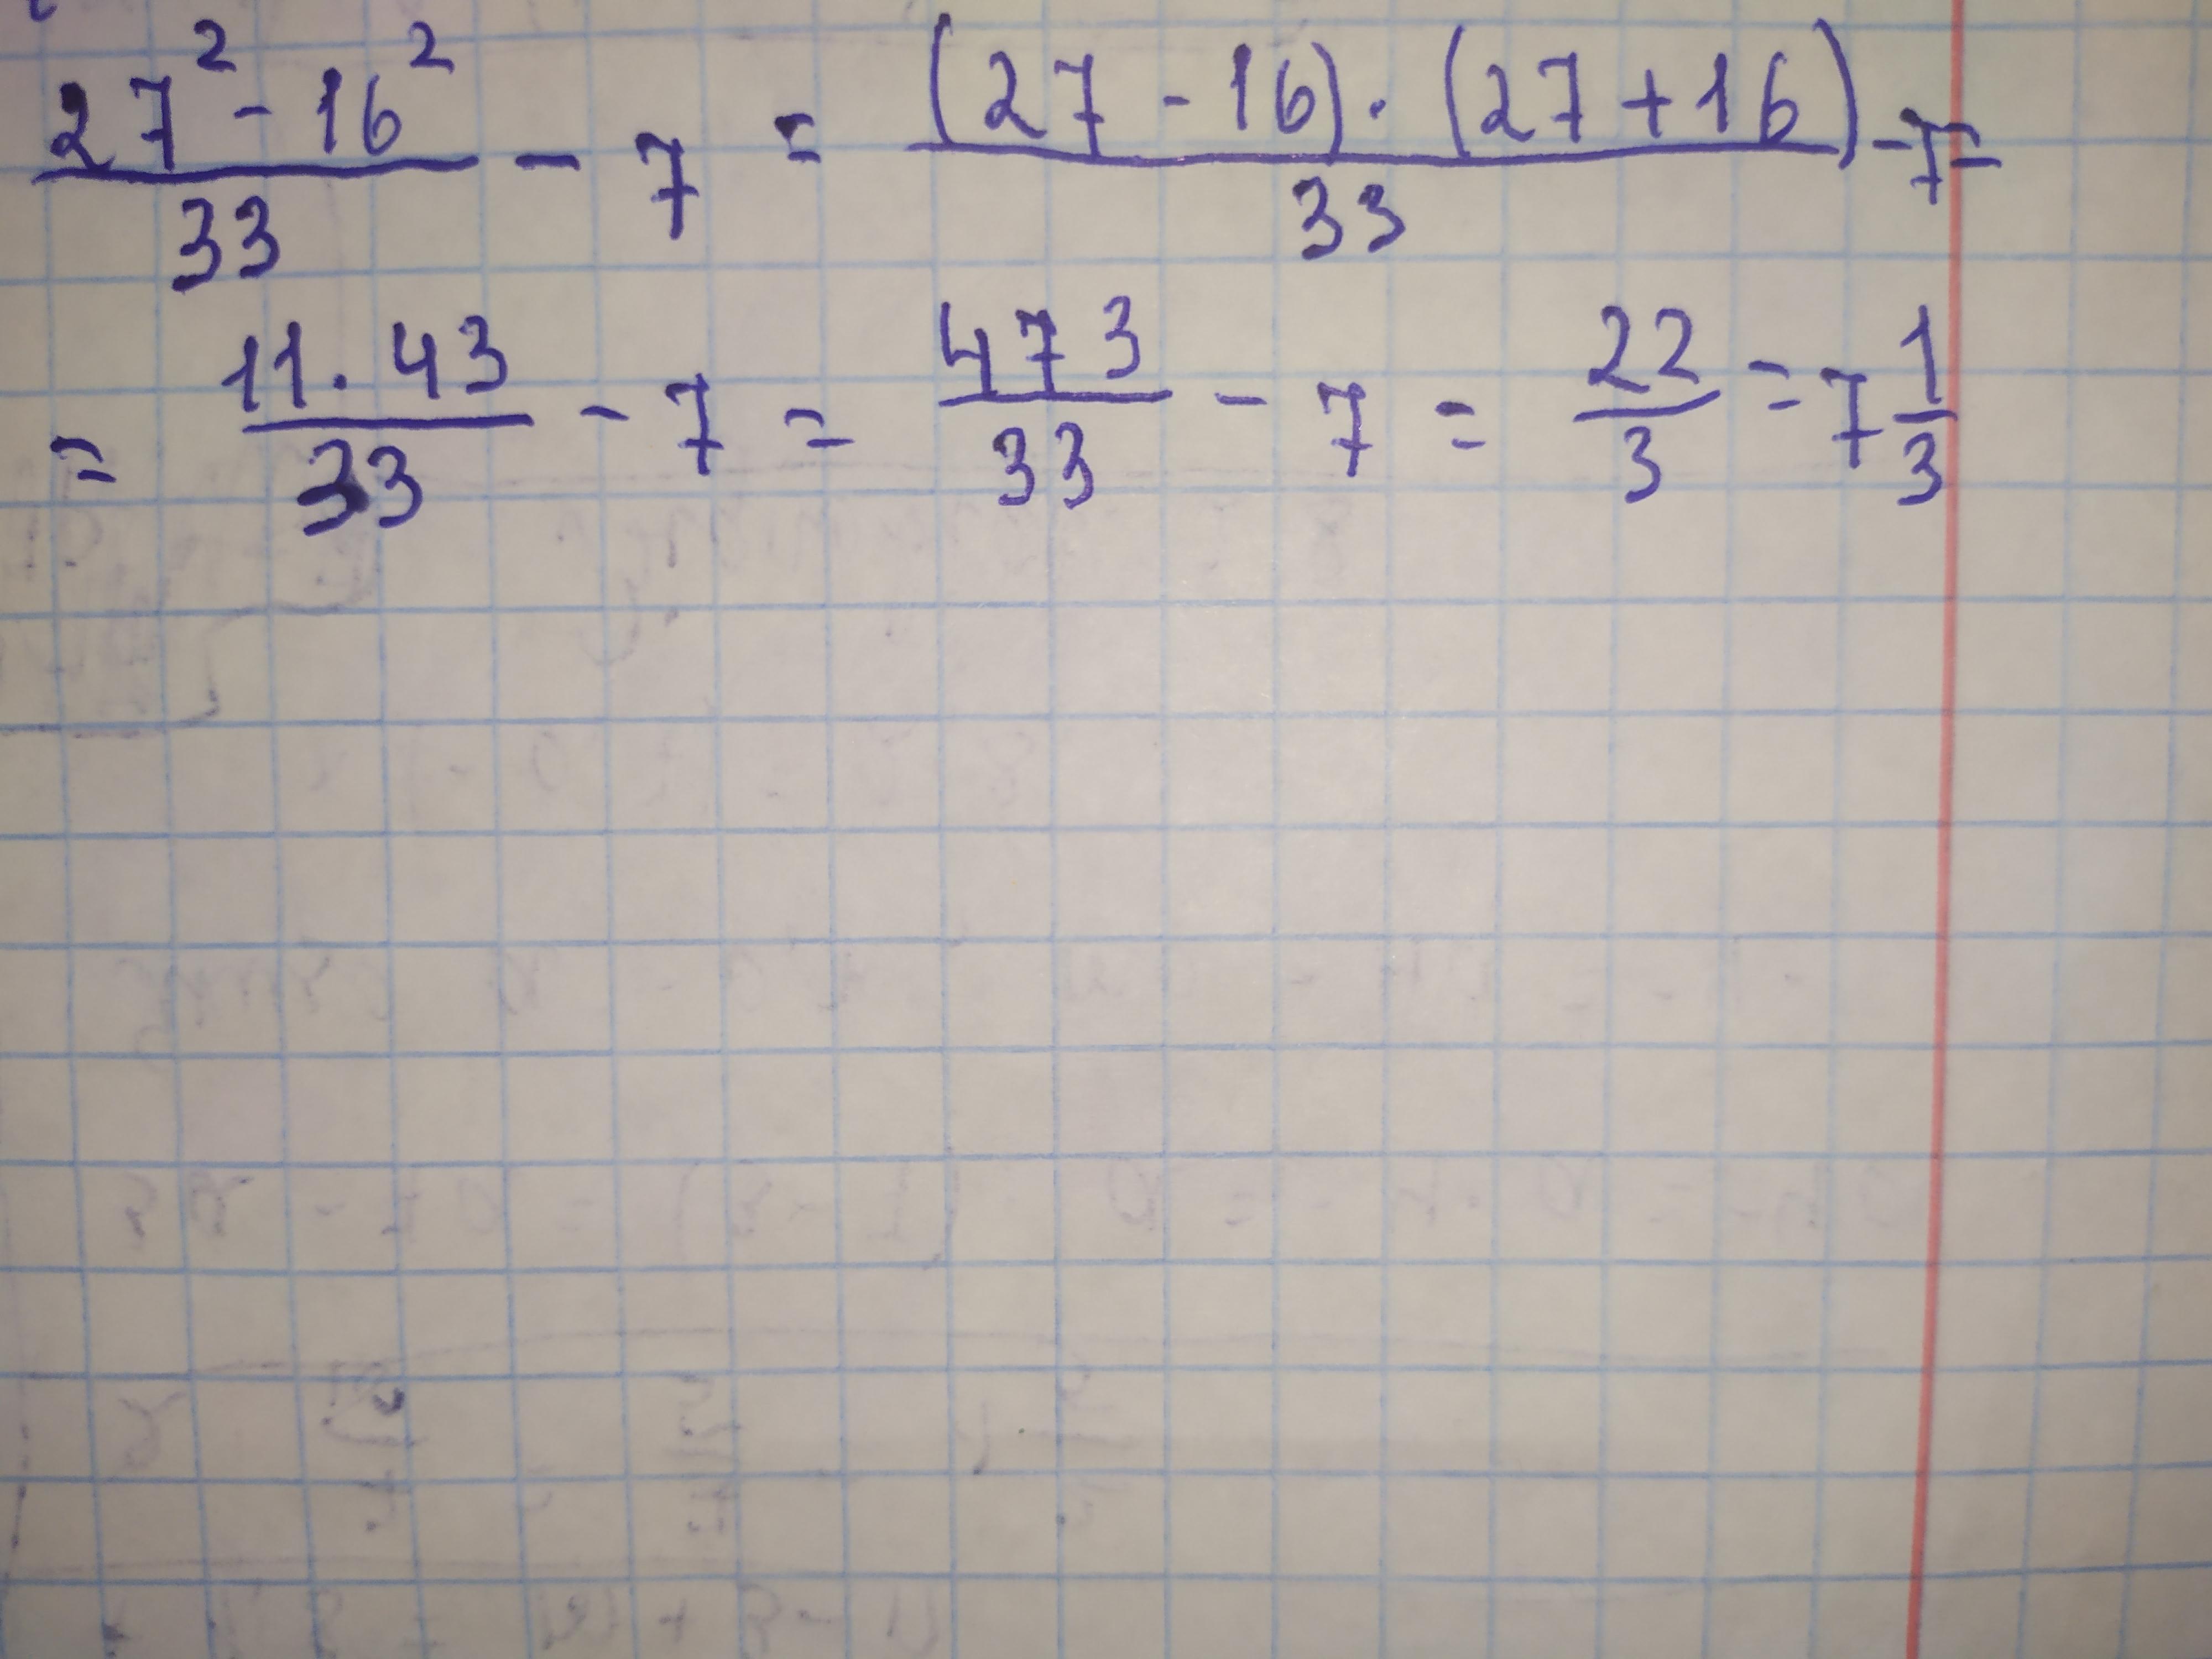 (27² - 16²)/33 - 7 = ((27 - 16) · (27 + 16))/33 - 7 =
= (11 · 43)/33 - 7 = 473/33 - 7 = 22/3 = 7 1/3